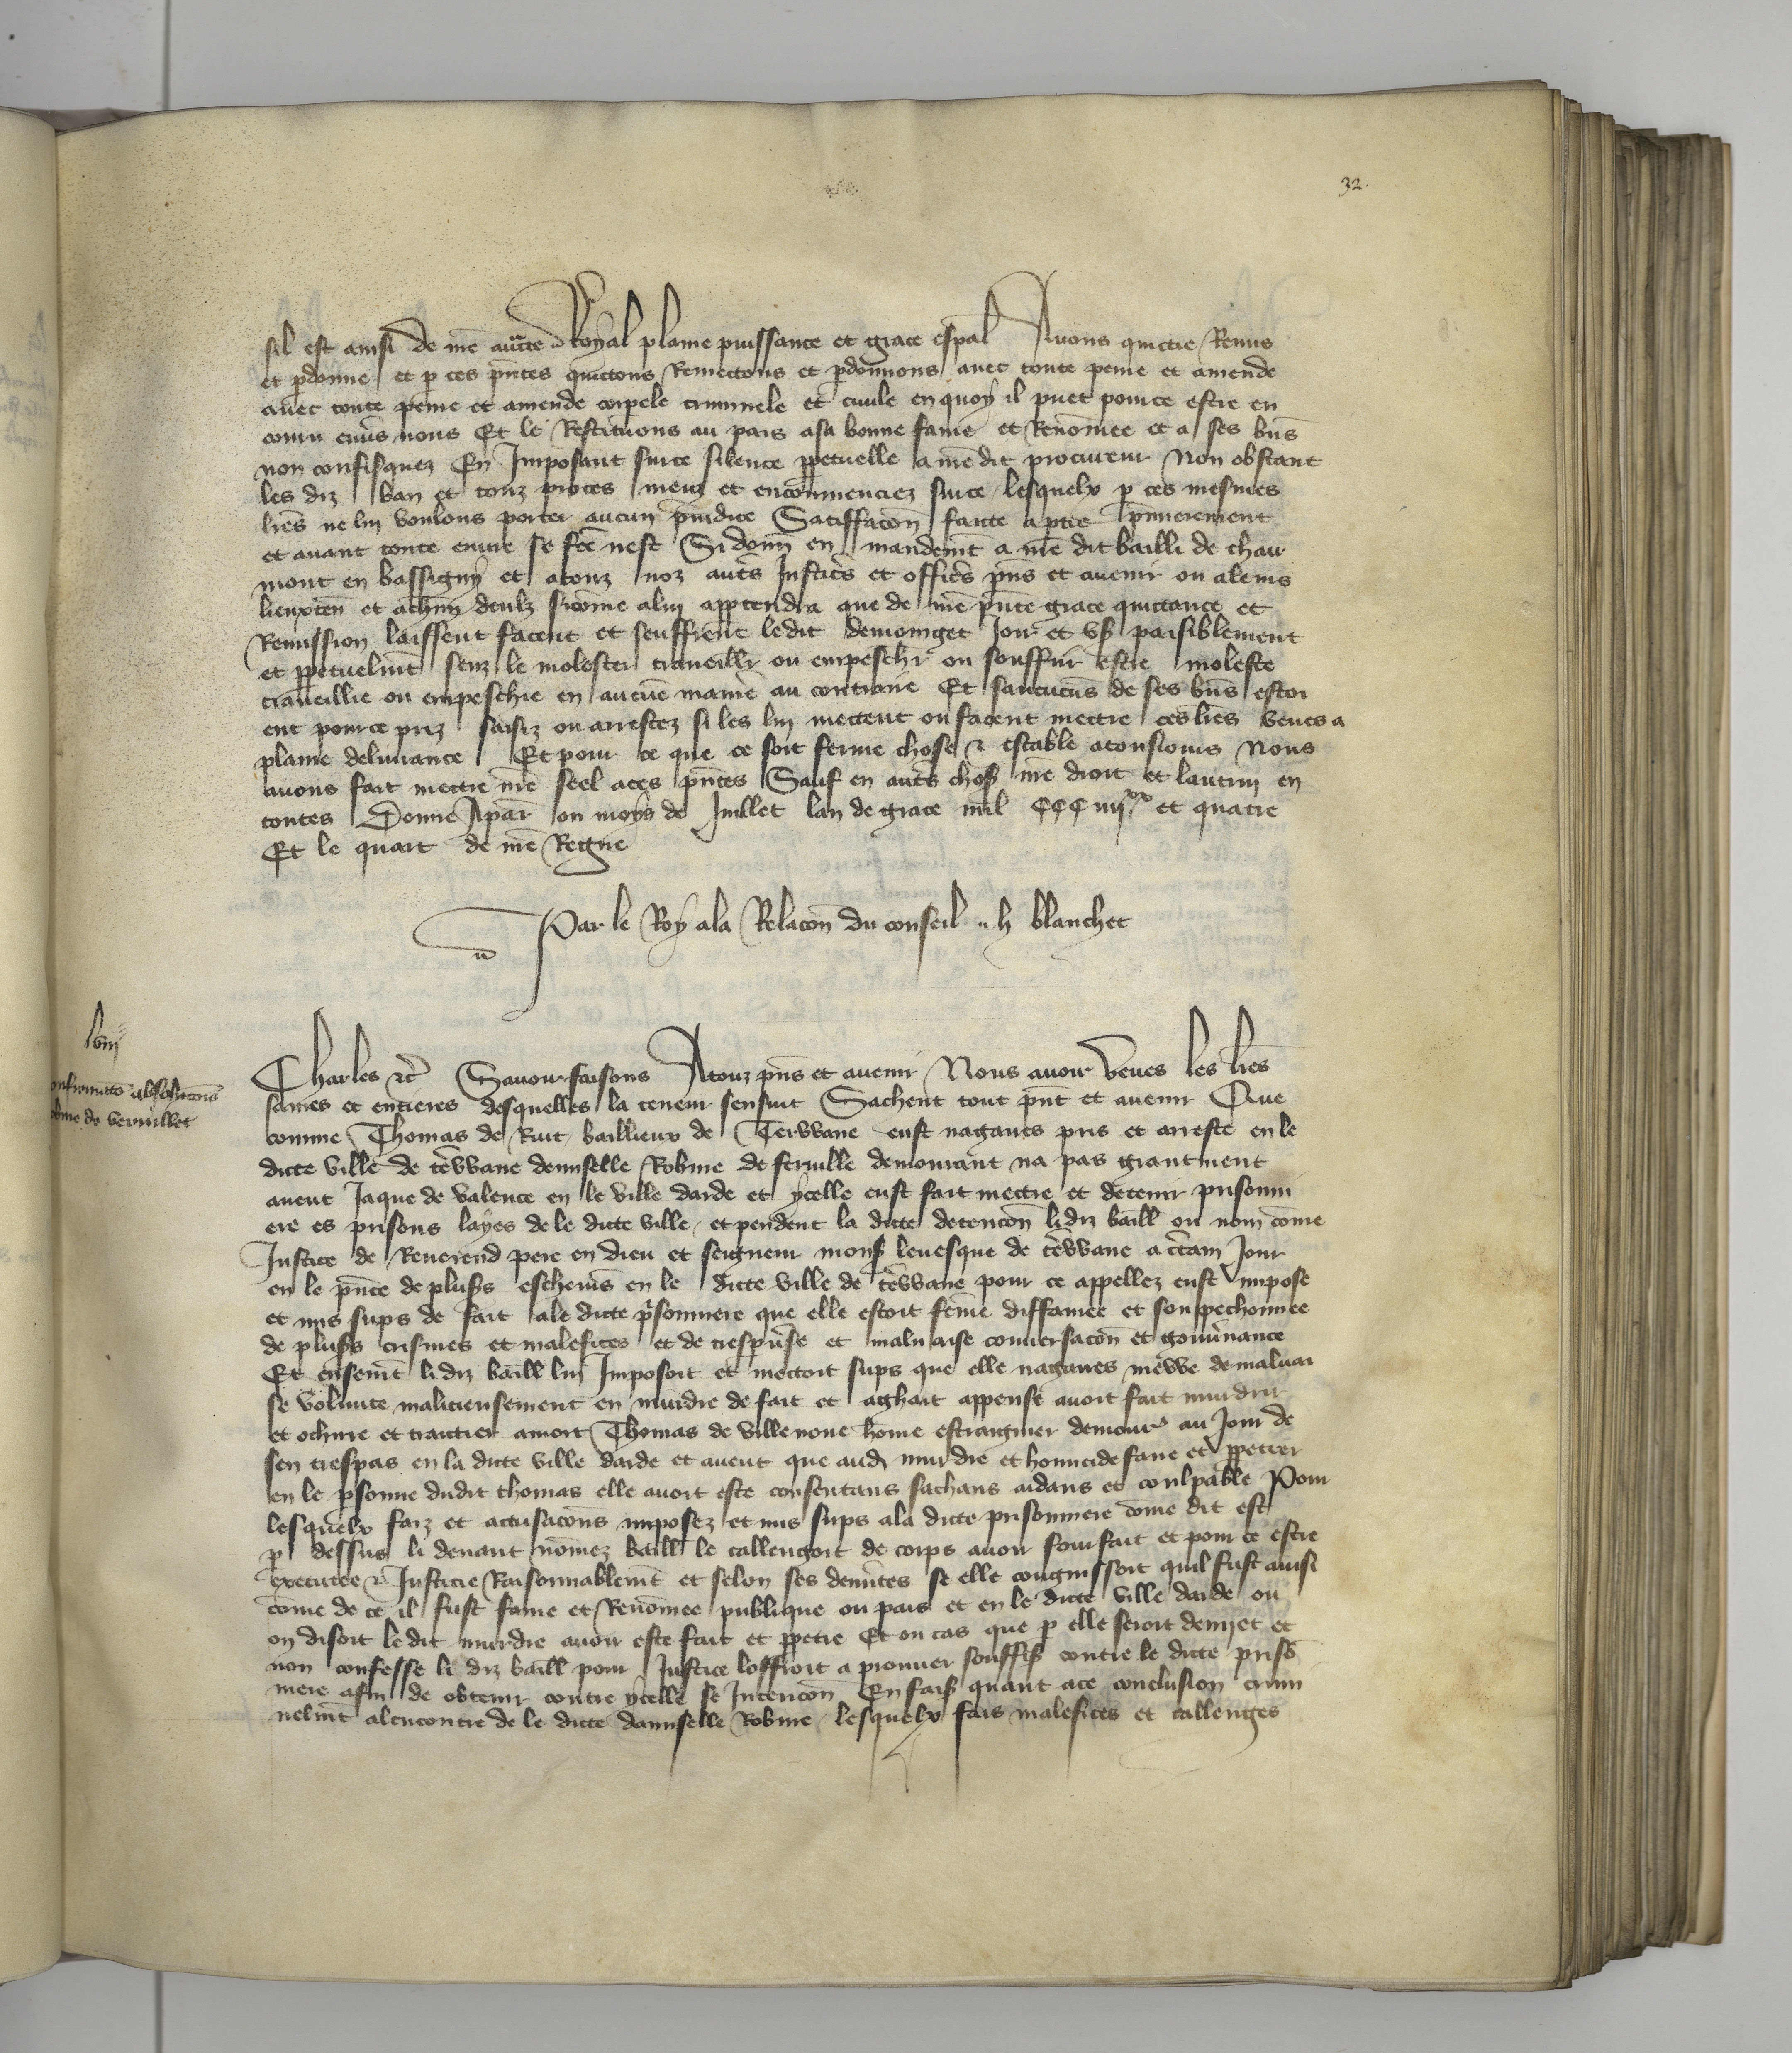 32
sil est ainsi de nre aucte Royal plaine puissance et grace espal Avons quictie Remis
et pdonne et p ces pntes quictons Remectons et pdonnons avec toute peine et amende
avec toute peine et amende corpele criminele et civile en quoy il puet pour ce estre en
couru envs nous Et le Restituons au pais a sa bonne fame et Renomee et a ses bns
non confisquez En Imposant sur ce silence ppetuelle a nre dit procureur Non obstant
les diz ban et touz proces meuz et encommenciez sur ce lesquelx p ces mesmes
lres ne lui voulons porter aucun preiudice Satiffacon faite a ptie pmierement
et avant toute euvre se fce nest Si donn en mandemt a nre dit bailli de chau
mont en bassigny et a touz noz autrs Justicrs et officrs pns et avenir ou a leurs
lieuxten et a chun deulz sicome a lui apptendra que de nre pnte grace quictance et
Remission laissent facent et seuffrent ledit demoinget Joir et us paisiblement
et ppetuelmt senz le molester traveillr ou empeschr ou souffrir estre moleste
traveillie ou empeschie en aucue manie au contraire Et saucuns de ses bns estoi
ent pour ce priz saisiz ou arrestez si les lui mectent ou facent mectre ces lres veues a
plaine delivrance Et pour ce que ce soit ferme chose & estable a tousiours Nous
avons fait mectre nre seel a ces pntes Sauf en autrs chos nre droit et lautrui en
toutes Donne A par ou moys de Juillet lan de grace mil CCC iiijxx et quatre
Et le quart de nre Regne
Par le Roy a la Relacon du conseil h blanchet
lviij
confirmatio absolutonis
Robine de vervillet
Charles &c Savoir faisons A touz pns et avenir Nous avoir veues les lres
saines et entieres desquelles la teneur sensuit Sachent tout pnt et avenir Que
comme Thomas de Ruit baillieux de Terwane eust nagaires pris et arreste en le
dicte ville de trwane demiselle Robine de ferville demourant na pas grantment
avent Jaque de valence en le ville darde et ycelle eust fait mectre et detenir prisonni
ere es prisons layes de le dicte ville et pendent la dicte detencon li diz baill ou nom come
Justice de Reverend pere en dieu et seigneur mons levesque de trwane a ctain Jour
en le pnce de pluss eschevis en le dicte ville de trwane pour ce appellez eust impose
et mis sups de fait a le dicte prsonniere que elle estoit feme diffamee et souppechonnee
de pluss crismes et malefices et de trespvrse et malvaise conversacon et gouvrnance
Et ensemt li diz baill lui Imposoit et mectoit sups que elle nagaires mewe de malvai
se volunte malicieusement en murdre de fait et aghait appense avoit fait murdrir
et ochire et traitier a mort Thomas de ville noue home estraignier demour au Jour de
sen trespas en la dicte ville darde et avent que aud murdre et homicide faire et ppetrer
en le psonne dudit thomas elle avoit este consentans sachans aidans et coulpable Pour
lesquelx faiz et accusacons imposez et mis sups a la dicte prisonniere come dit est
p dessus li devant nomez baill le callengoit de corps avoir fourfait et pour ce estre
executee & Justicie Raisonnablemt et selon ses demrites se elle congnissoit quil fust ainsi
come de ce il fust fame et Renomee publique ou pais et en le dicte ville darde ou
on disoit le dit murdre avoir este fait et ppetre Et ou cas que p elle seroit denyet et
non confesse li diz baill pour Justice loffroit a prouver souffis contre le dicte priso
niere afin de obtenir contre ycelle se Intencon En fais quant a ce conclusion crimi
nelmt alencontre de le dicte damiselle Robine lesquelx fais malefices et callenges